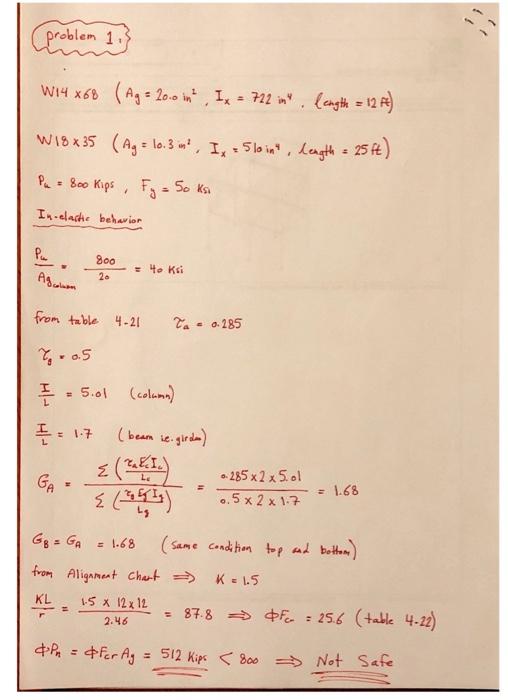 problem 1:
W14 x68 (Ag = 20.0 in², Ix = 722 in⁴, length = 12 ft)
W18 x 35 (Ag = 10.3 in², Ix = 510 in⁴, length = 25 ft)
Pu = 800 Kips, Fy = 50 Ksi
In-elastic behavior
Pu / Ag column = 800 / 20 = 40 Ksi
from table 4-21 τa = 0.285
τg = 0.5
I/L = 5.01 (column)
I/L = 1.7 (beam ie. girder)
GA = Σ (τa Ec Ic / Lc) / Σ (τg Eg Ig / Lg) = 0.285 x 2 x 5.01 / 0.5 x 2 x 1.7 = 1.68
GB = GA = 1.68 (same condition top and bottom)
from Alignment Chart ⟹ K = 1.5
KL/r = 1.5 x 12 x 12 / 2.46 = 87.8 ⟹ ΦFcr = 25.6 (table 4-22)
ΦPn = ΦFcr Ag = 512 Kips < 800 ⟹ Not Safe